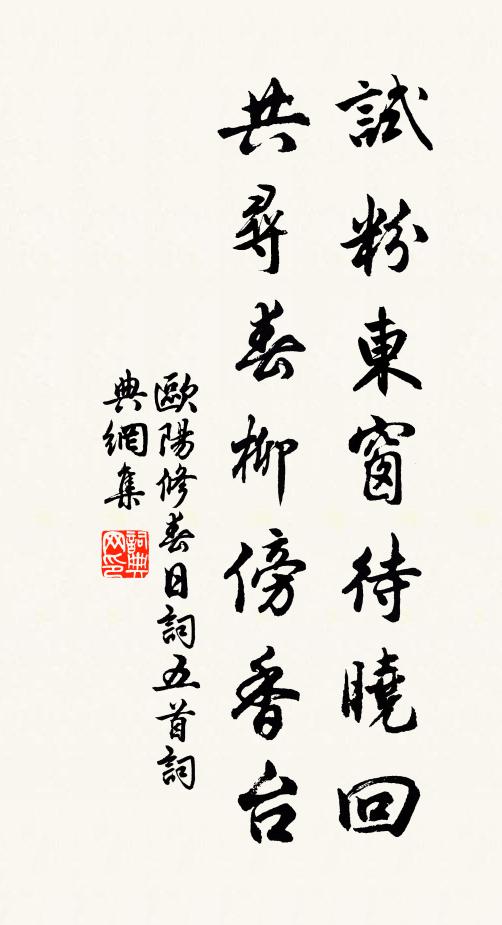 試粉東窗待曉回
共尋春柳傍香台
歐陽修春日詞五首詞
典網集
詞典
网印